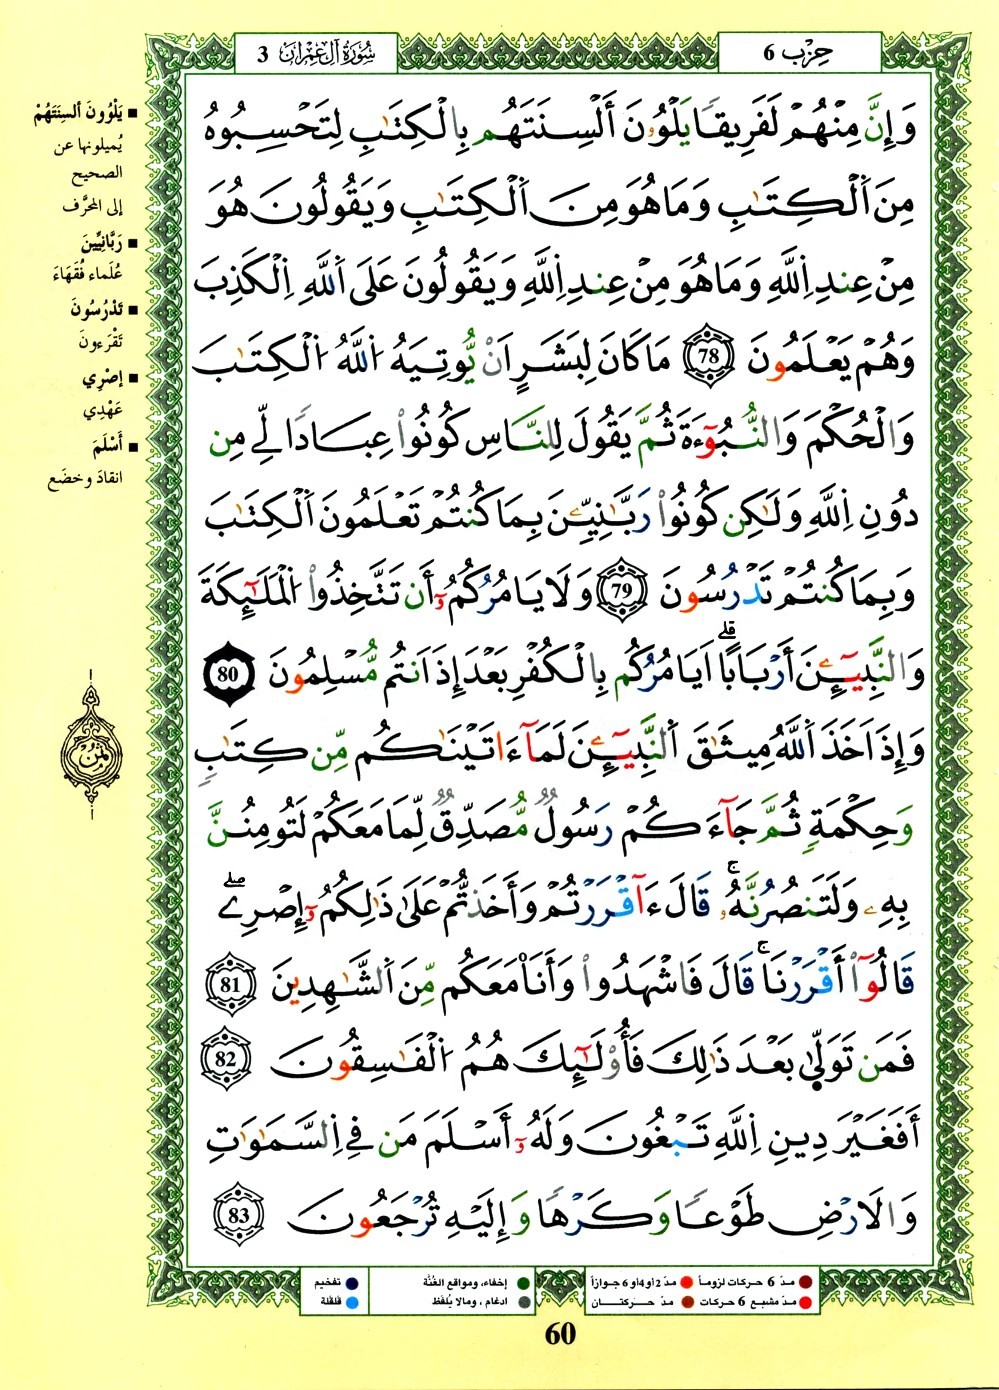 حِزْب 6
سُورَةُ آلِ عِمْرَانَ 3
وَإِنَّ مِنْهُمْ لَفَرِيقًا يَلْوُۥنَ أَلْسِنَتَهُم بِالْكِتَٰبِ لِتَحْسِبُوهُ
مِنَ اَ۬لْكِتَٰبِ وَمَا هُوَ مِنَ اَ۬لْكِتَٰبِ وَيَقُولُونَ هُوَ
مِنْ عِندِ اِ۬للَّهِ وَمَا هُوَ مِنْ عِندِ اِ۬للَّهِ وَيَقُولُونَ عَلَى اَ۬للَّهِ اِ۬لْكَذِبَ
وَهُمْ يَعْلَمُونَ 78 مَا كَانَ لِبَشَرٍ اَنْ يُّوتِيَهُ اُ۬للَّهُ اُ۬لْكِتَٰبَ
وَالْحُكْمَ وَالنُّبُوٓءَةَ ثُمَّ يَقُولَ لِلنَّاسِ كُونُواْ عِبَادًا لِّے مِن
دُونِ اِ۬للَّهِ وَلَٰكِن كُونُواْ رَبَّٰنِيِّـۧنَ بِمَا كُنتُمْ تَعْلَمُونَ اَ۬لْكِتَٰبَ
وَبِمَا كُنتُمْ تَدْرُسُونَ 79 وَلَا يَامُرُكُمُۥٓ أَن تَتَّخِذُواْ اُ۬لْمَلَٰٓئِكَةَ
وَالنَّبِيٓـِٕۧنَ أَرْبَابًاۖ اَيَامُرُكُم بِالْكُفْرِ بَعْدَ إِذَ اَنتُم مُّسْلِمُونَ 80
وَإِذَ اَخَذَ اَ۬للَّهُ مِيثَٰقَ اَ۬لنَّبِيٓـِٕۧنَ لَمَآ ءَاتَيْنَٰكُم مِّن كِتَٰبٍ
وَحِكْمَةٍ ثُمَّ جَآءَكُمْ رَسُولٌ مُّصَدِّقٌ لِّمَا مَعَكُمْ لَتُومِنُنَّ
بِهِۦ وَلَتَنصُرُنَّهُۥۚ قَالَ ءَآقْرَرْتُمْ وَأَخَذتُّمْ عَلَىٰ ذَٰلِكُمُۥٓ إِصْرِےۖ
قَالُوٓاْ أَقْرَرْنَاۚ قَالَ فَاشْهَدُواْ وَأَنَا۠ مَعَكُم مِّنَ اَ۬لشَّٰهِدِينَ 81
فَمَن تَوَلّ۪يٰ بَعْدَ ذَٰلِكَ فَأُوْلَٰٓئِكَ هُمُ اُ۬لْفَٰسِقُونَ 82
أَفَغَيْرَ دِينِ اِ۬للَّهِ تَبْغُونَ وَلَهُۥٓ أَسْلَمَ مَن فِے اِ۬لسَّمَٰوَٰتِ
وَالَارْضِ طَوْعًا وَكَرْهًا وَإِلَيْهِ تُرْجَعُونَ 83
■ يَلْوُونَ ألسِنَتَهُمْ
يُميلونها عن
الصحيح
إلى المحَرَّف
■ رَبَّانِيِّينَ
عُلَماء فُقَهَاءَ
■ تَدْرُسُونَ
تَقْرَءونَ
■ إصْرِي
عَهْدِي
■ أَسْلَمَ
انقادَ وخضَع
ثُمُن
مدّ 6 حركات لزوماً
مدّ 2 أو 4 أو 6 جوازاً
مدّ مشبع 6 حركات
مدّ حركتان
إخفاء، ومواقع الغُنَّة
ادغام، ومالا يُلفَظ
تفخيم
قلقلة
60